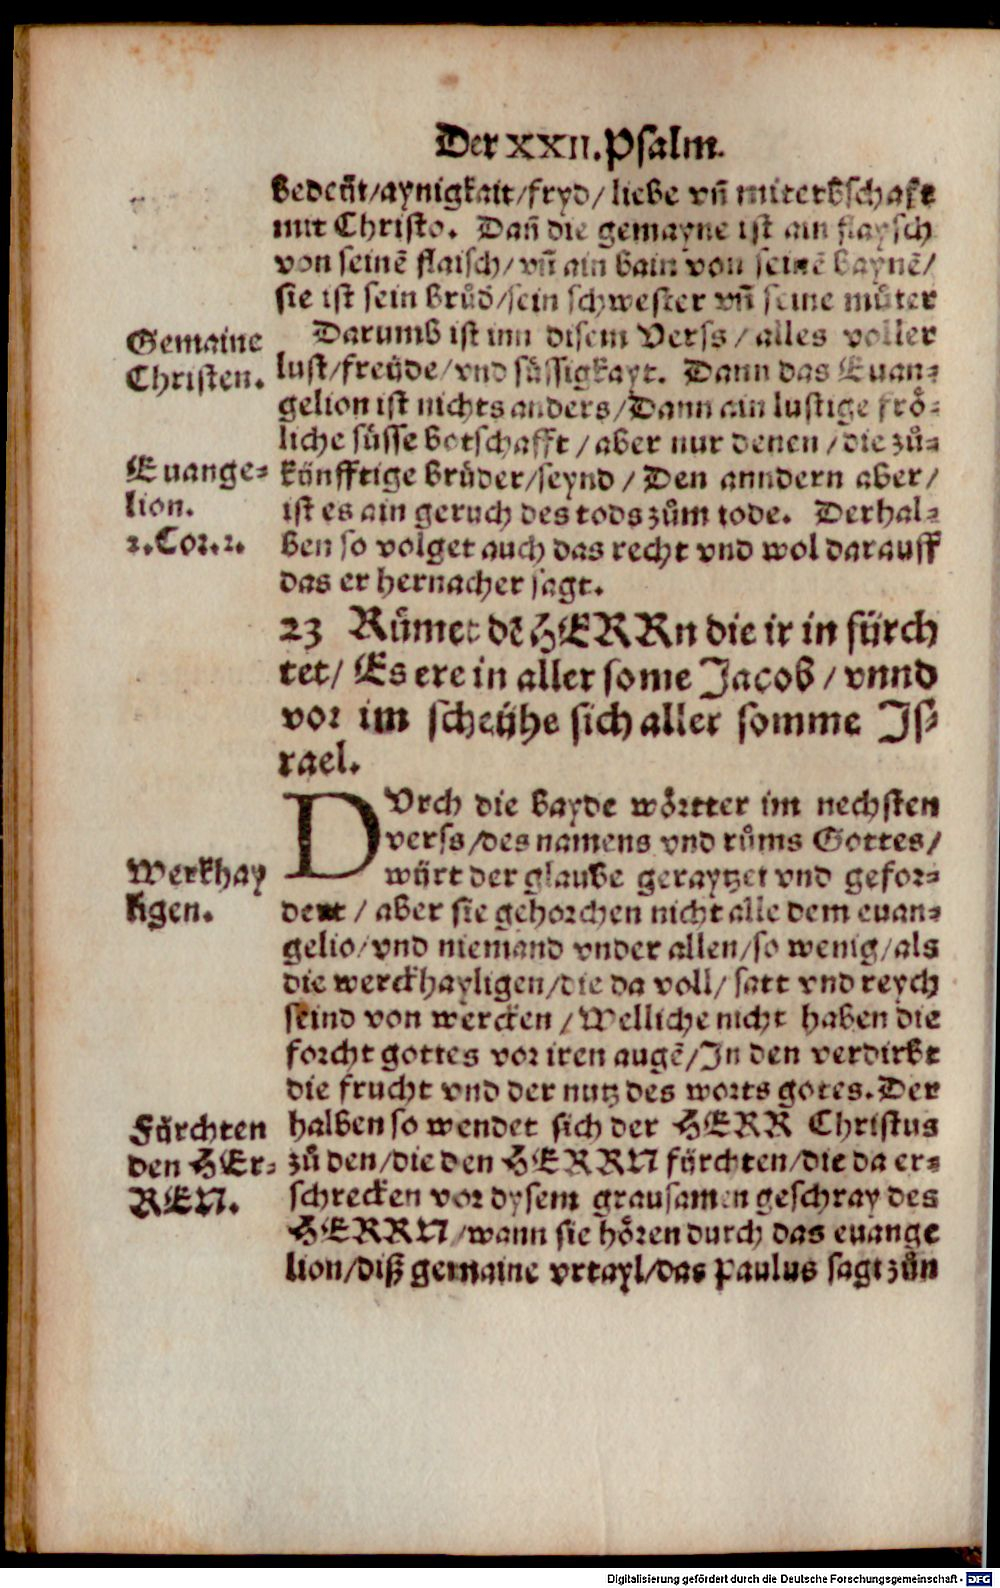 Der XXII. Psalm.
bedeüt/aynigkait/fryd/ liebe vñ miterbschaft
mit Christo. Dañ die gemayne ist ain flaysch
von seinē flaisch/ vñ ain bain von seinē baynē/
sie ist sein brůd/sein schwester vñ seine můter
Darumb ist inn disem Verss / alles voller
lust/freüde/vnd süssigkayt. Dann das Euan-
gelion ist nichts anders/Dann ain lustige frö-
liche süsse botschafft / aber nur denen /die zů-
künfftige brüder/seynd / Den anndern aber/
ist es ain geruch des tods zům tode. Derhal-
ben so volget auch das recht vnd wol darauff
das er hernacher sagt.
Gemaine
Christen.
Euange-
lion.
2.Cor.2.
23 Růmet dē HERRn die ir in fürch
tet/ Es ere in aller some Jacob / vnnd
vor im scheühe sich aller somme Js-
rael.
DVrch die bayde wörtter im nechsten
verss/des namens vnd růms Gottes/
würt der glaube geraytzet vnd gefor-
dert / aber sie gehorchen nicht alle dem euan-
gelio/vnd niemand vnder allen/so wenig/als
die werckhayligen/die da voll/ satt vnd reych
seind von wercken /Welliche nicht haben die
forcht gottes vor iren augē/In den verdirbt
die frucht vnd der nutz des worts gotes. Der
halben so wendet sich der HERR Christus
zů den/die den HERRN fürchten/die da er-
schrecken vor dysem grausamen geschray des
HERRN/wann sie hören durch das euange
lion/diß gemaine vrtayl/das Paulus sagt zůn
Werkhay
ligen.
Fürchten
den HEr-
REN.
Digitalisierung gefördert durch die Deutsche Forschungsgemeinschaft - DFG